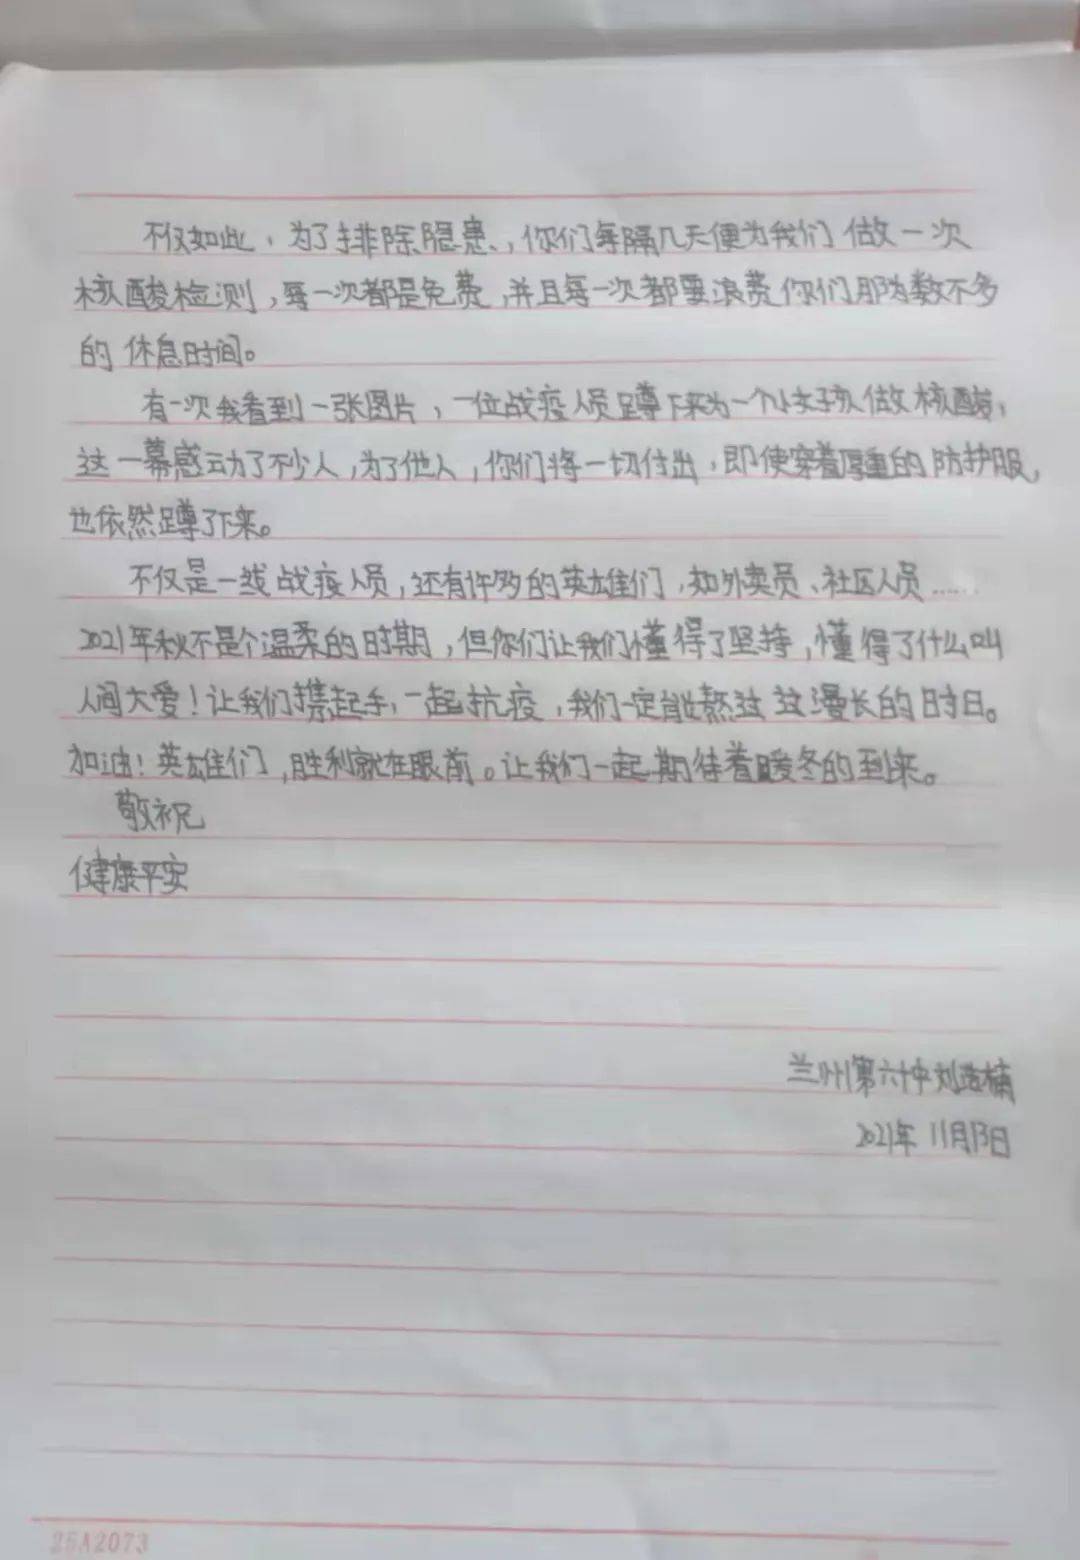 不仅如此，为了排除隐患，你们每隔几天便为我们做一次
核酸检测，每一次都是免费，并且每一次都要浪费你们那为数不多
的休息时间。
有一次我看到一张图片，一位战疫人员蹲下来为一个小女孩做核酸，
这一幕感动了不少人，为了他人，你们将一切付出，即使穿着厚重的防护服，
也依然蹲了下来。
不仅是一线战疫人员，还有许多的英雄们，如外卖员、社区人员……
2021年秋不是个温柔的时期，但你们让我们懂得了坚持，懂得了什么叫
人间大爱！让我们携起手，一起抗疫，我们一定能熬过这漫长的时日。
加油！英雄们，胜利就在眼前。让我们一起期待着暖冬的到来。
敬祝
健康平安
兰州第六十中刘浩楠
2021年11月13日
25A2073